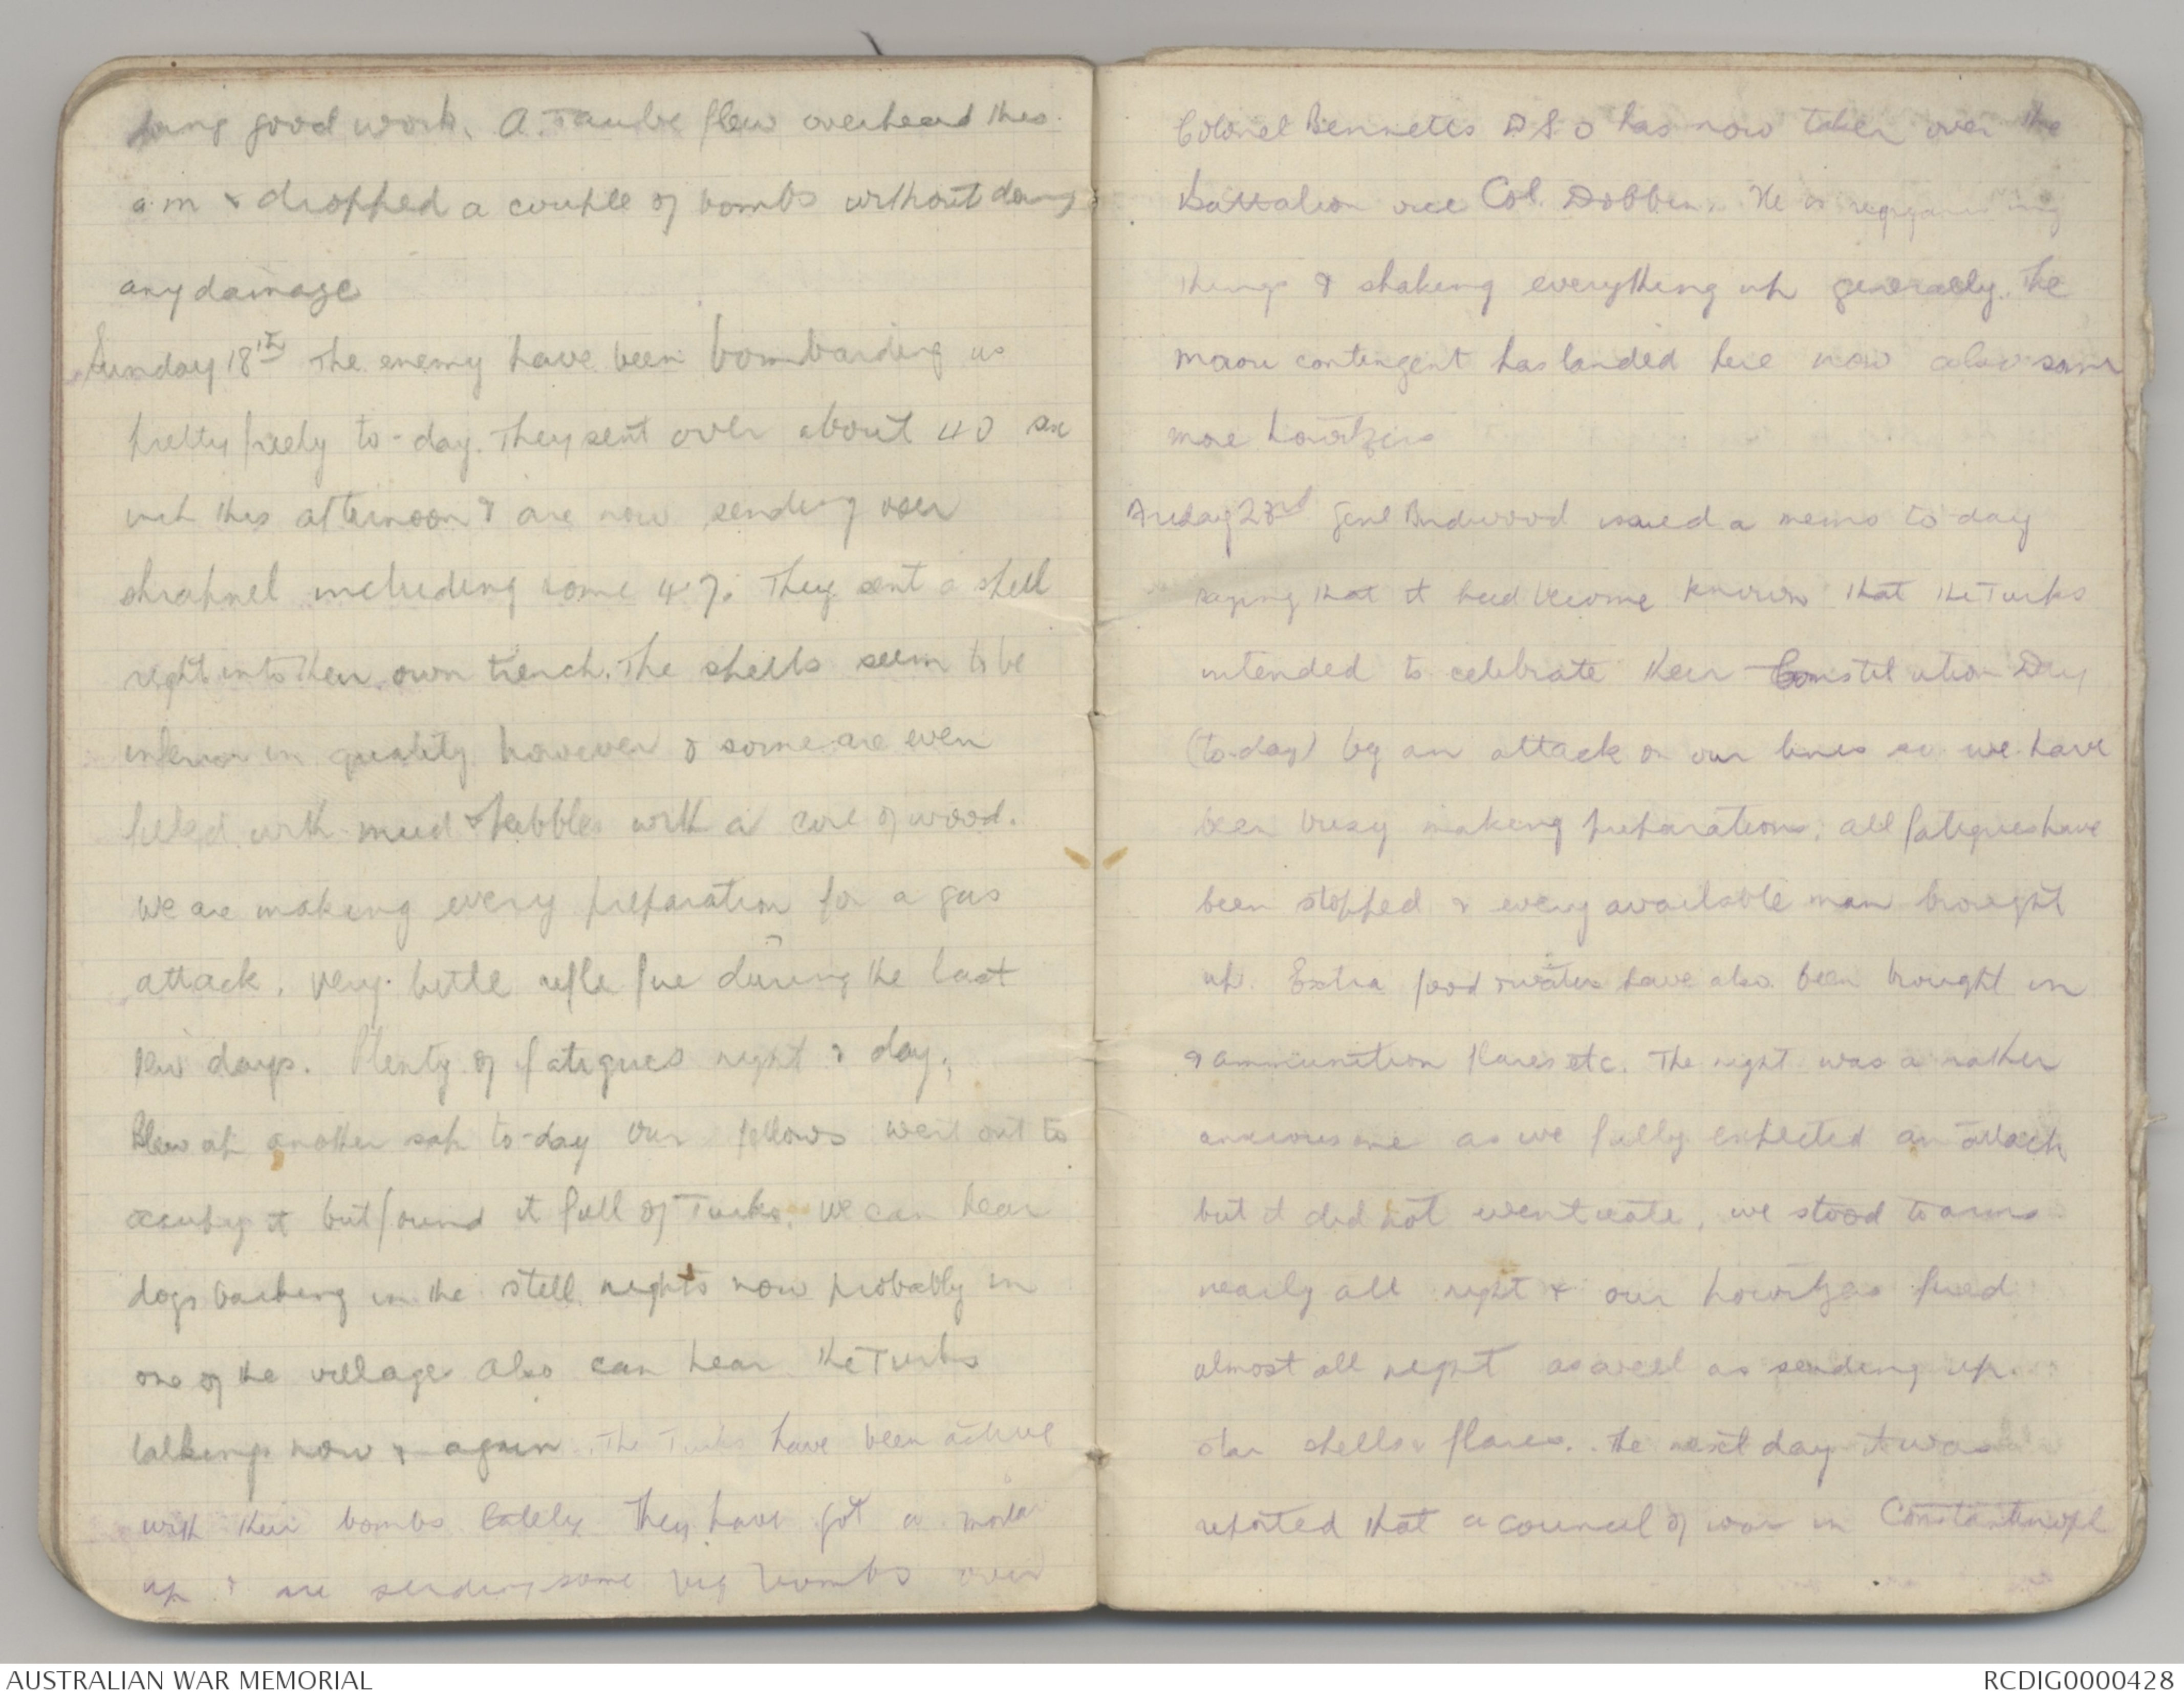 doing good work. A. Taube flew overhead this
a.m & dropped a couple of bombs without doing
any damage
Sunday 18th The enemy have been bombarding us
pretty freely to-day. They sent over about 40 six
inch this afternoon & are now sending over
shrapnel including some 4.7. They sent a shell
right into their own trench. The shells seem to be
inferior in quality however & some are even
filled with mud & pebbles with a core of wood.
We are making every preparation for a gas
attack. Very little rifle fire during the last
few days. Plenty of fatigues night & day.
Blew up another sap to-day our fellows went out to
occupy it but found it full of Turks. We can hear
dogs barking in the still nights now probably in
one of the villages also can hear the Turks
talking now & again. The Turks have been active
with their bombs lately They have got a
up & are sending some big bombs over
Colonel Bennetts D S O has now taken over the
Battalion vice Col. Dobbin. He is
things & shaking everything up generally. The
Maori contingent has landed here now also some
more howitzers
Friday 23rd Genl Birdwood issued a memo to day
saying that it had become known that the Turks
intended to celebrate their Constitution Day
(to-day) by an attack on our lines so we have
been busy making preparations, all fatigues have
been stopped & every available man brought
up. Extra food & water have also been brought in
& ammunition flares etc. The night was a rather
anxious one as we fully expected an attack
but it did not eventuate, we stood to arms
nearly all night & our howitzers fired
almost all night as well as sending up
star shells & flares. The next day it was
reported that a council of war in Constantinopl
AUSTRALIAN WAR MEMORIAL
RCDIG0000428